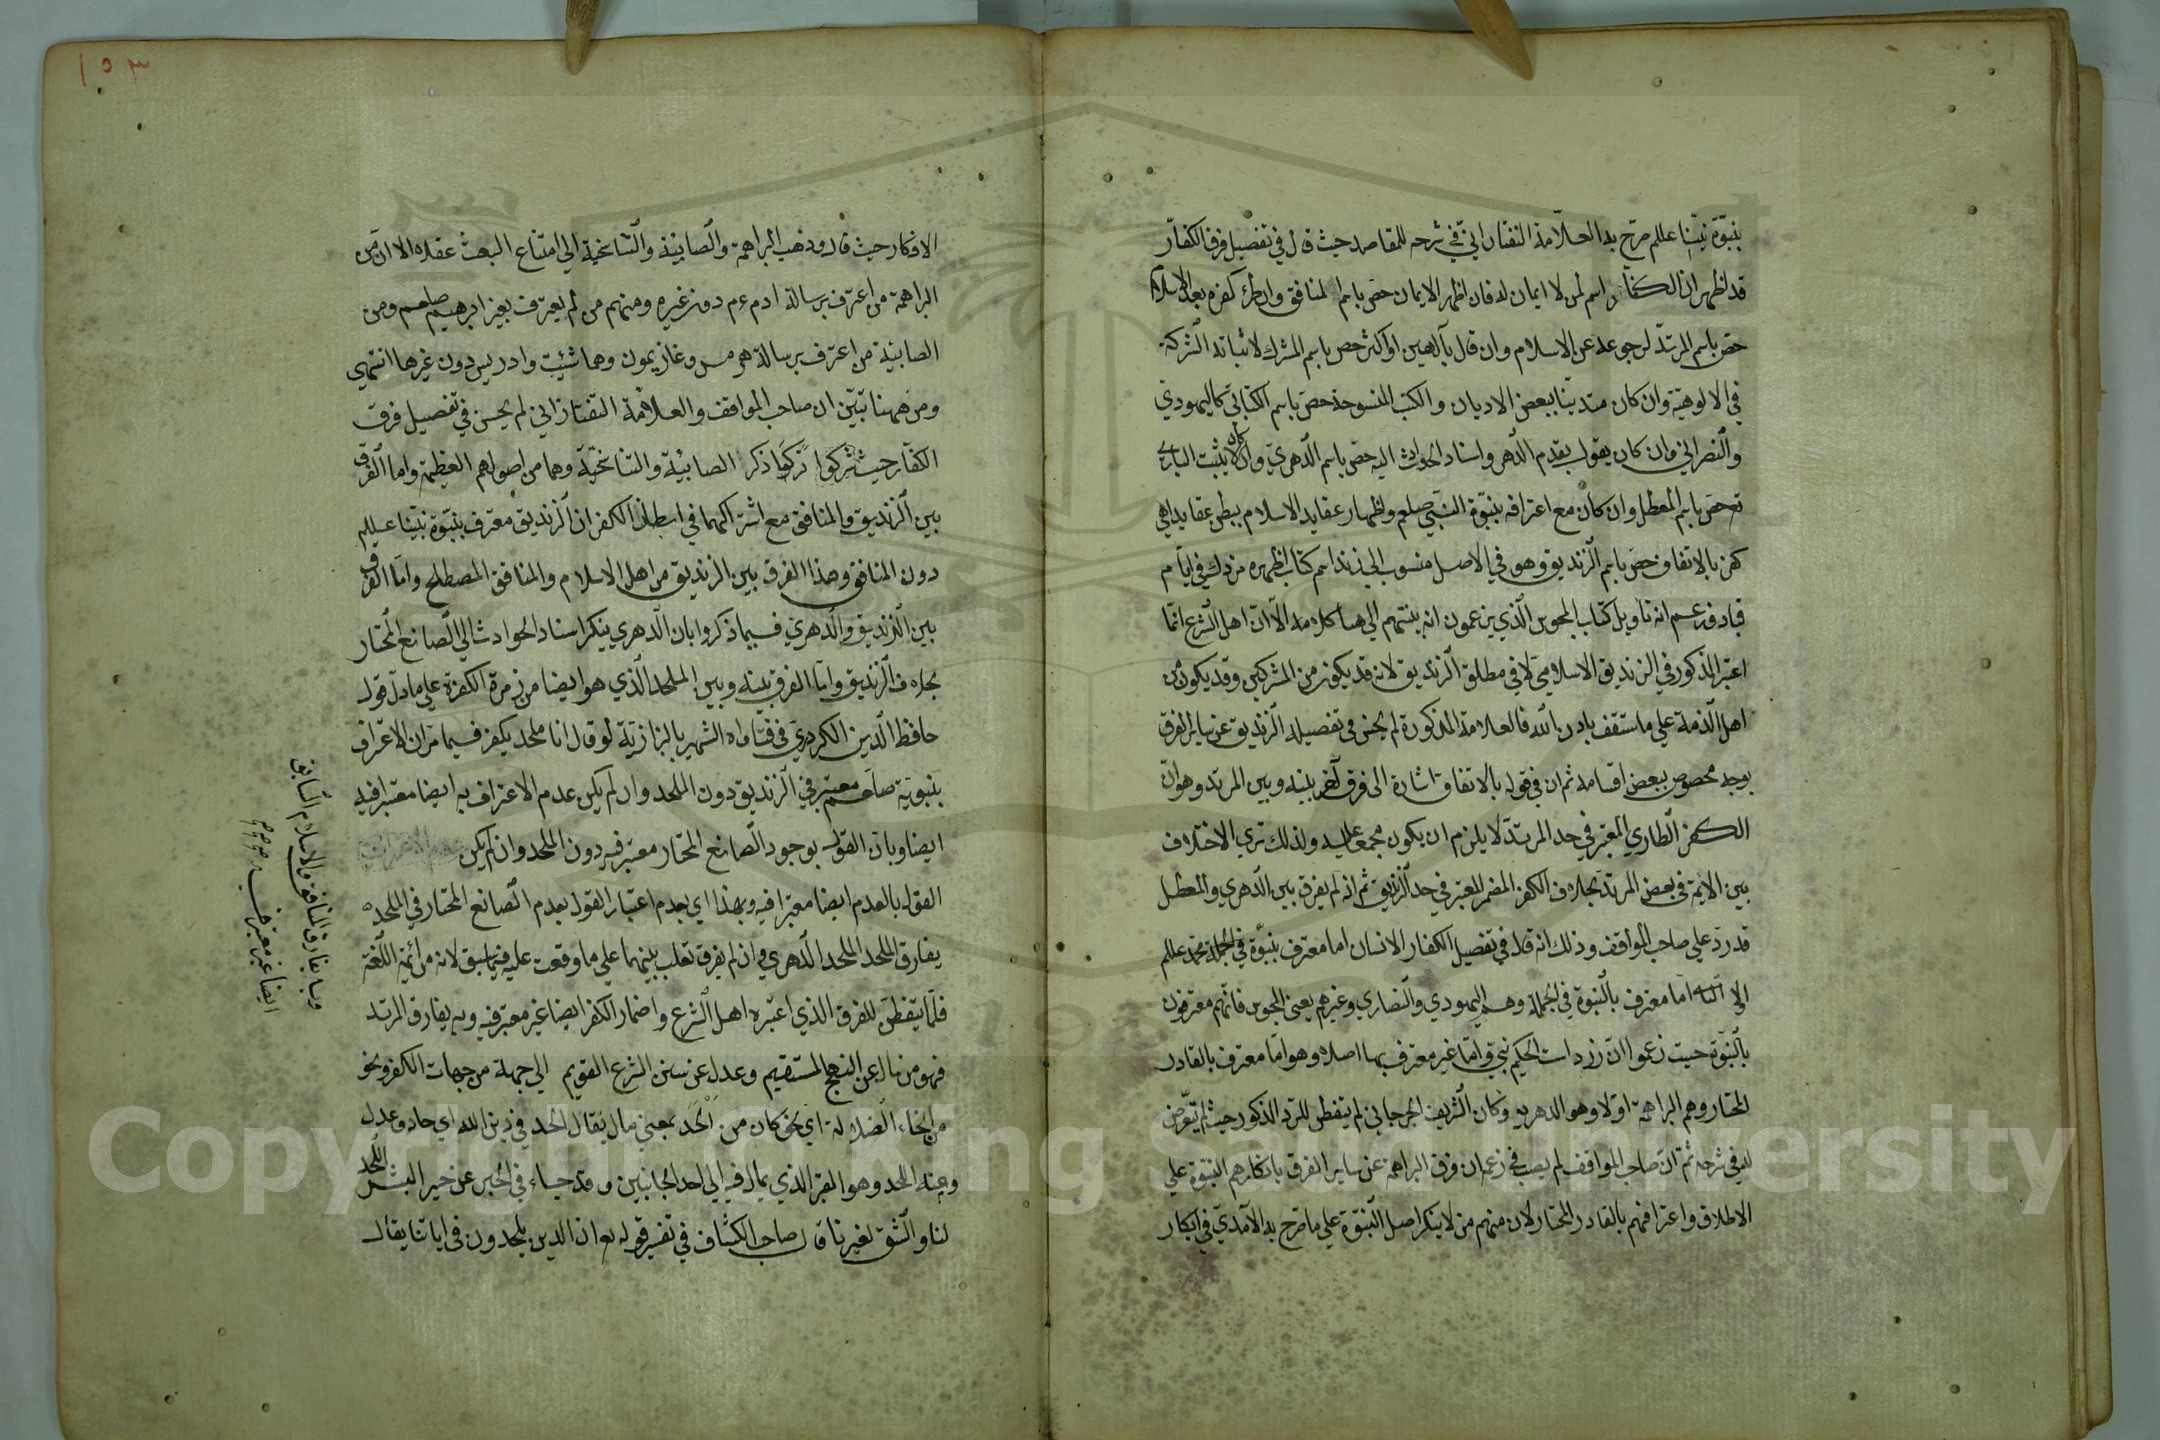 بنبوّة نبيّنا عللم صرّح به العلّامة التفتازاني في شرحه للمقاصد حيث قال في تفصيل فرق الكفّار
قد ظهر ان الكفار اسم لمن لا ايمان له فان اظهر الايمان خصّ باسم المنافق وان طرأ كفره بعد الاسلام
خصّ باسم المرتدّ لرجوعه عن الاسلام وان قال بآلهين او اكثر خص باسم المشرك لاثباته الشركة
في الالوهيّة وان كان متديّنا ببعض الاديان والكتب المنسوخة خصّ باسم الكتابي كاليهودي
والنصراني وان كان يقول بقدم الدّهر واسناد الحوادث اليه خصّ باسم الدّهريّ وان كان لا يثبت الباري
تع خصّ باسم المعطل وان كان مع اعترافه بنبوّة النبيّ صلعم واظهار عقايد الاسلام يبطن عقايد هي
كفر بالاتفاق خصّ باسم الزنديق وهو في الاصل منسوب الى زند اسم كتاب اظهره مزدك في ايّام
قباد وزعم انه تأويل كتاب المجوس الّذي يزعمون انه نبيّهم الى هنا كلامه الّا انّ اهل الشرع انّما
اعتبر المذكور في الزنديق الاسلاميّ لا في مطلق الزنديق لانه قد يكون من المشركين وقد يكون من
اهل الذّمة على ما ستقف باذن الله فالعلامة المذكورة لم يحسن في تفصيله الزنديق عن ساير الفرق
بوجه مخصوص ببعض اقسامه ثم ان في قوله بالاتفاق اشارة الى فرق آخر بينه وبين المرتد وهو انّ
الكفر الطاري المعتبر في حد المرتدّ لا يلزم ان يكون مجمعا عليه ولذلك ترى الاختلاف
بين الايمّة في بعض المرتدّ بخلاف الكفر المضمر المعتبر في حد الزنديق ثم انه لم يفرق بين الدّهري والمعطل
قد ردّ على صاحب المواقف وذلك انه قال في تفصيل الكفار الانسان اما معترف بنبوّة في الجملة محمد عللم
اولا الثّاني امّا معترف بالنبوة في الجملة وهم اليهودي والنصارى وغيرهم يعنى المجوس فانّهم معترفون
بالنبوّة حيث زعموا انّ زردات الحكيم نبيّ وامّا غير معترف بها اصلا وهو امّا معترف بالقادر
المختار وهم البراهمة او لا وهو الدهريه وكان الشريف الجرجاني لم يتفطن للردّ المذكور حيث لم يتعرّض
له في شرحه ثم انّ صاحب المواقف لم يصب في زعمه ان فرق البراهمة عن ساير الفرق بانكارهم النبوّة على
الاطلاق واعترافهم بالقادر المختار لان منهم من لا ينكر اصل النبوّة على ما صرّح به الآمديّ في ابكار
١٥٣
الافكار حيث قال وذهب البراهمة والصابئة والتناسخية الى امتناع البعث عقلا الا ان من
البراهمة من اعترف برسالة ادم ءم دون غيره ومنهم من لم يعترف بغير ابرهيم صلعم ومن
الصابئية من اعترف برسالة هرمس وغاريمون وهما شيث وادريس دون غيرهما انتهى
ومن ههنا تبيّن ان صاحب المواقف والعلامة التفتازاني لم يحسن في تفصيل فرق
الكفّار حيث تركوا ذكر الصابئية والتناسخيّة وهما من اصولهم العظيمة واما الفرق
بين الزنديق والمنافق مع اشتراكهما في ابطان الكفر ان الزنديق معترف بنبوّة نبيّنا عليلم
دون المنافق وهذا الفرق بين الزنديق من اهل الاسلام والمنافق المصطلح وامّا الفرق
بين الزنديق والدّهريّ فبما ذكروا بان الدّهري ينكر اسناد الحوادث الى الصّانع المختار
بخلاف الزنديق وامّا الفرق بينه وبين الملحد الّذي هو ايضا من زمرة الكفرة على ما دلّ قول
حافظ الدّين الكردري في فتاواه الشهير بالبزازيّة لو قال انا ملحد يكفر فبما مرّ ان الاعتراف
بنبوّته صلعم معتبر في الزنديق دون الملحد وان لم يكن عدم الاعتراف به ايضا معتبرا فيه
ايضا وبان القول بوجود الصانع المختار معتبر فيه دون الملحد وان لم يكن
القول بالعدم ايضا معتبرا فيه وبهذا اي بعدم اعتبار القول بعدم الصانع المختار في الملحد
يفارق الملحد الملحد الدّهري وان لم يفرق ثعلب بينهما على ما وقفت عليه فيما سبق لانه من ائمة اللّغة
فلمّا يتفطن للفرق الذي اعتبره اهل الشرع واضمار الكفر ايضا غير معتبر فيه وبه يفارق المرتد
فهو من مال عن النهج المستقيم وعدل عن سنن الشرع القويم الى جهة من جهات الكفر ونحو
من انحاء الضلالة اي نحو كان من الحد بمعنى مال يقال الحد في دين الله اي حاد وعدل
ومنه اللحد وهو القبر الذي يمال فيه الى احد الجانبين وقد جاء في الخبر عن خير البشر اللحد
لنا والشق لغيرنا قال صاحب الكشّاف في تفسير قوله تع ان الذين يلحدون في اياتنا يقال
وبها يفارق المنافق والاسلام السّابق
ايضا غير معتبر فيه